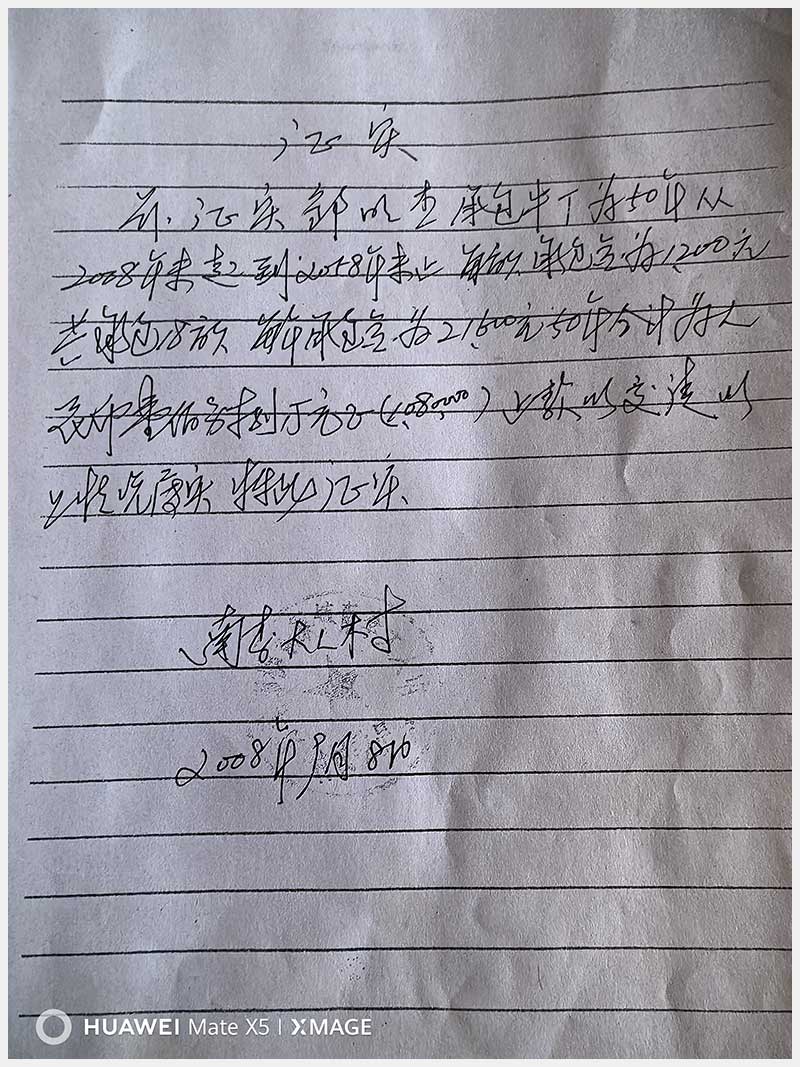 证实
兹证实郭明奎承包年丁为50年从
2008年末起到2058年末止 每亩承包金为1,200元
共承包18亩 每年承包金为21,600元50年合计为人
民币壹佰零捌万元正(1,080,000) 上款以交清 以
上情况属实 特此证实
南 村
2008年 月8日
HUAWEI Mate X5 | XMAGE